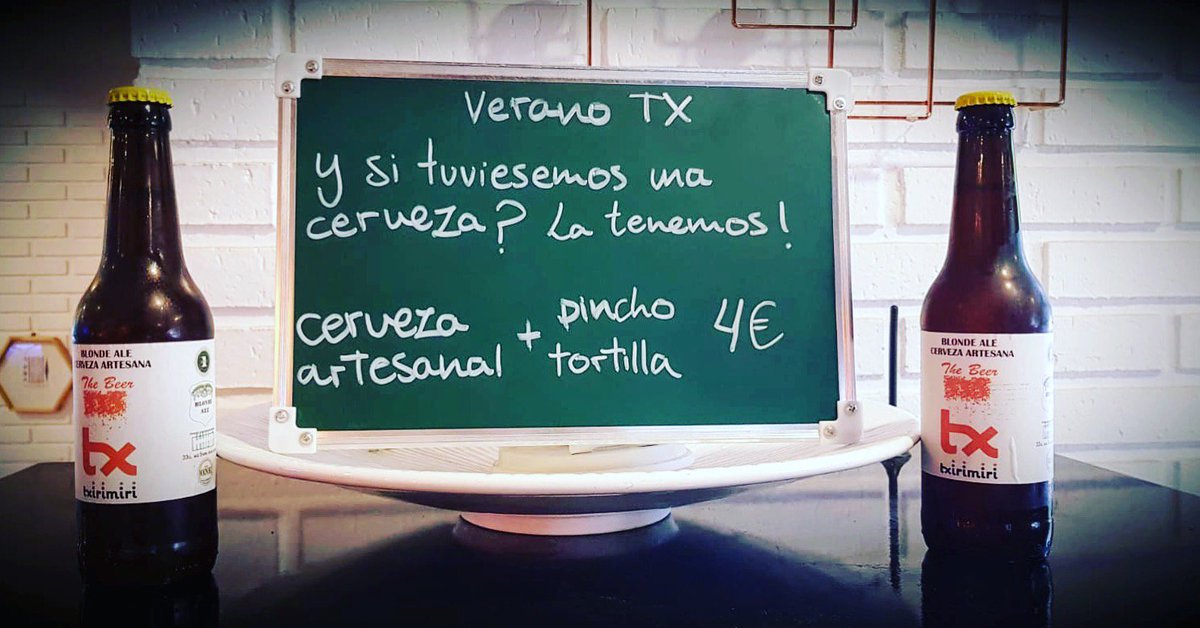 Verano TX
y si tuviesemos una
cerveza? La tenemos!
cerveza + pincho 4€
artesanal tortilla
BLONDE ALE
CERVEZA ARTESANA
The Beer
BLONDE
ALE
tx
txirimiri
BLONDE ALE
CERVEZA ARTESANA
The Beer
tx
txirimiri